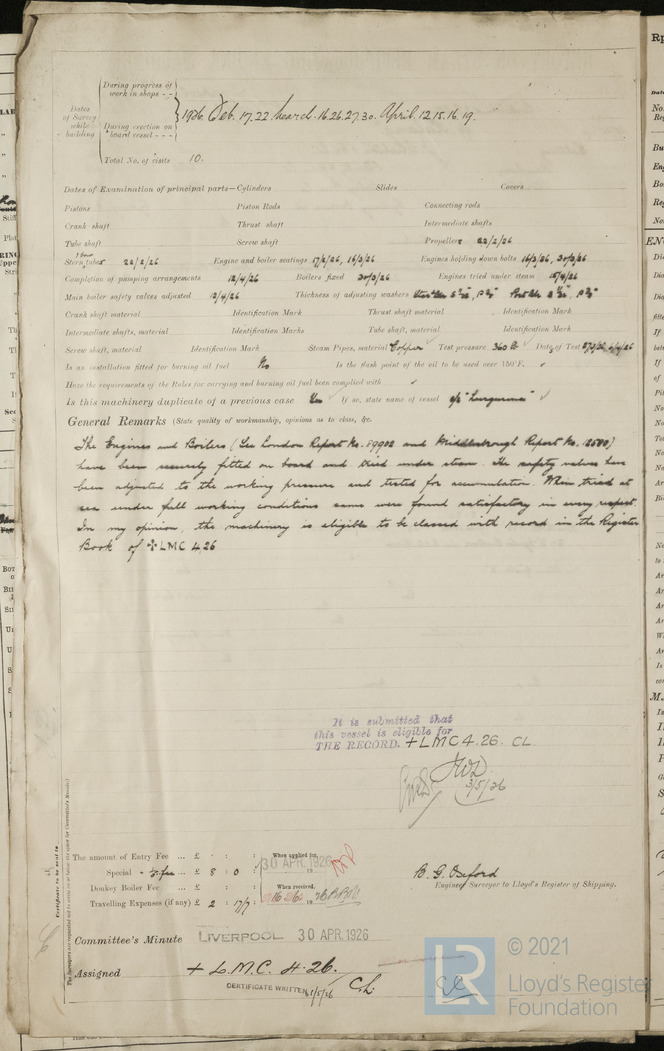 During progress of
work in shops - -
Dates
of Survey
while
building
1926. Feb. 17. 22. March. 16. 26. 27. 30. April. 12. 15. 16. 19.
During erection on
board vessel - - -
Total No. of visits 10.
Dates of Examination of principal parts—Cylinders Slides Covers
Pistons Piston Rods Connecting rods
Crank shaft Thrust shaft Intermediate shafts
Tube shaft Screw shaft Propeller 22/2/26
Stern tube 22/2/26 Engine and boiler seatings 17/2/26, 16/3/26 Engines holding down bolts 16/3/26, 30/3/26
Completion of pumping arrangements 12/4/26 Boilers fixed 30/3/26 Engines tried under steam 15/4/26
Main boiler safety valves adjusted 12/4/26 Thickness of adjusting washers
Crank shaft material Identification Mark Thrust shaft material Identification Mark
Intermediate shafts, material Identification Marks Tube shaft, material Identification Mark
Screw shaft, material Identification Mark Steam Pipes, material Copper Test pressure 360 lb Date of Test
Is an installation fitted for burning oil fuel No Is the flash point of the oil to be used over 150°F. ✓
Have the requirements of the Rules for carrying and burning oil fuel been complied with ✓
Is this machinery duplicate of a previous case Yes ✓ If so, state name of vessel ✓
General Remarks (State quality of workmanship, opinions as to class, &c.
The Engines and Boilers (See London Report No. 89902 and Middlesbrough Report No. 12500)
have been securely fitted on board and tried under steam. The safety valves have
been adjusted to the working pressure and tested for accumulation. When tried at
sea under full working conditions same were found satisfactory in every respect.
In my opinion, the machinery is eligible to be classed with record in the Register
Book of +LMC 4.26
It is submitted that
this vessel is eligible for
THE RECORD. +LMC 4.26. CL
3/5/26
Certificate to be sent to
The Surveyors are requested not to write on or below the space for Committee's Minute.)
The amount of Entry Fee ... £ : : When applied for,
30 APR. 1926
Special ... £ 8 : 0 :
Donkey Boiler Fee ... £ : : When received,
Travelling Expenses (if any) £ 2 : 17/7 :
B. G. Oxford
Engineer Surveyor to Lloyd's Register of Shipping.
Committee's Minute LIVERPOOL 30 APR. 1926
Assigned + L.M.C. 4.26.
CERTIFICATE WRITTEN
CL
LR
© 2021
Lloyd's Register
Foundation